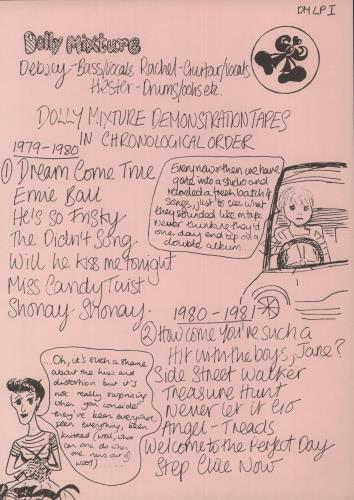 DMLP I
Dolly Mixture
Debsey-Bass/Vocals Rachel-Guitar/Vocals
Hester-Drums/
DOLLY MIXTURE DEMONSTRATION TAPES
IN CHRONOLOGICAL ORDER
1979-1980
① Dream Come True
Ernie Ball
He's so Frisky
The Didn't Song
Will he kiss me tonight
Miss Candy Twist
Shonay Shonay.
Every now & then we have
gone into a studio and
recorded a fresh batch of
songs, just to see what
they sounded like on tape
never thinking they'd
one day end up on a
double album...
1980-1981
② How come you're such a
Hit with the boys, Jane?
Side Street Walker
Treasure Hunt
Never let it Go
Angel-Treads
Welcome to the Perfect Day
Step Close Now
Oh, it's such a shame
about the hiss and
distortion but it's
not really surprising
when you consider
they've been everywhere,
seen everything, been
knitted (well, what
can one do when
one runs out of
wool)......